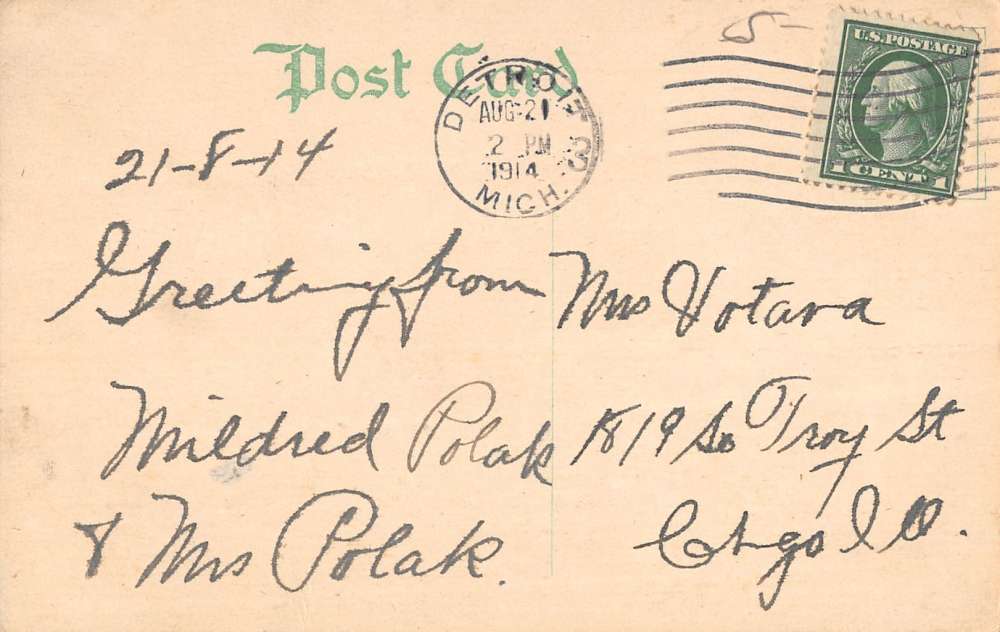 Post Card
5-
DETROIT
AUG 21
2 PM
1914
MICH.
U.S. POSTAGE
1 CENT 1
21-8-14
Greeting from
Mildred Polak
& Mrs Polak.
Mrs Votava
1819 So Troy St
Chgo Ill.